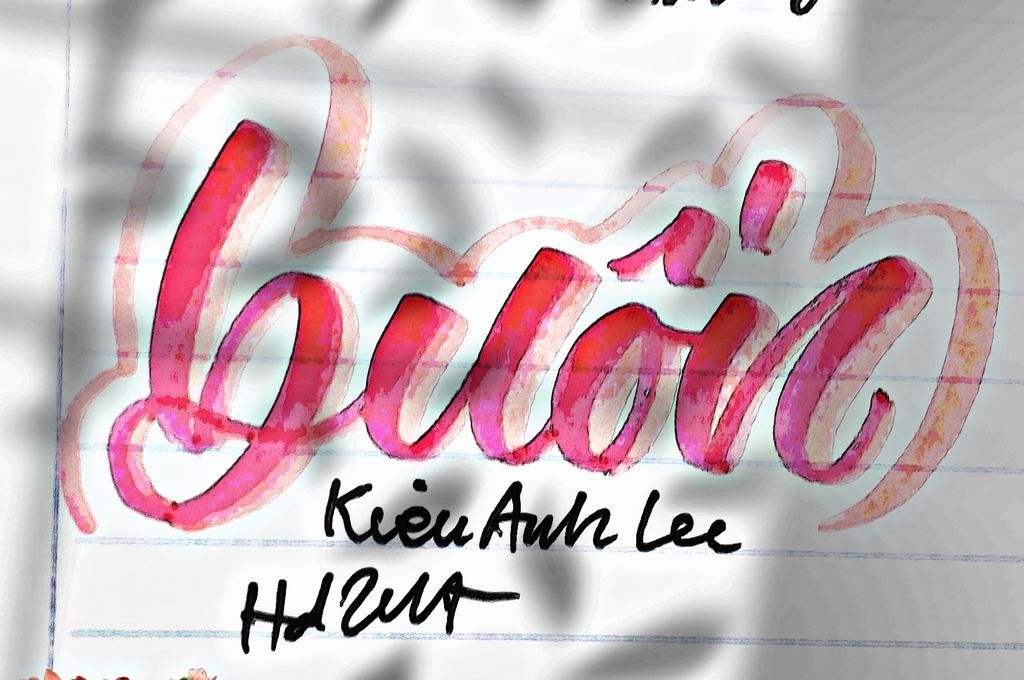 buồn
Kiều Anh Lee